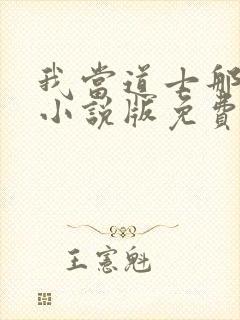 我當道士那
小說版免費
王憲魁